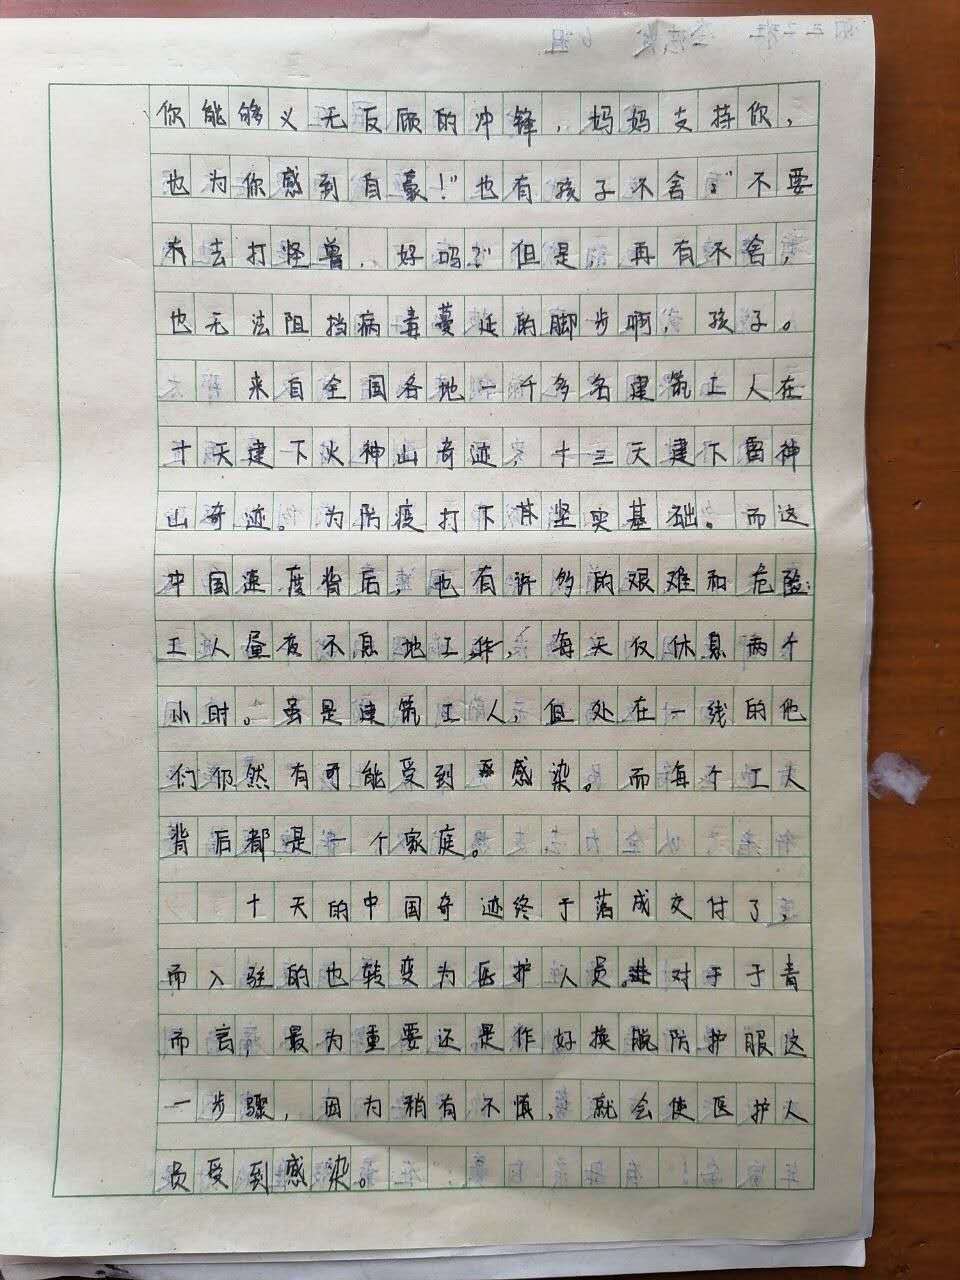 你能够义无反顾的冲锋，妈妈支持你，
也为你感到自豪！”也有孩子不舍：“不要
去打怪兽，好吗？”但是，再有不舍，
也无法阻挡病毒蔓延的脚步啊，孩子。
来自全国各地一千多名建筑工人在
十天建下火神山奇迹，十三天建下雷神
山奇迹。为防疫打下其坚实基础。而这
中国速度背后，也有许多的艰难和危险：
工人昼夜不息地工作，每天仅休息两个
小时。虽是建筑工人，但处在一线的他
们仍然有可能受到感染。而每个工人
背后都是一个家庭。
十天的中国奇迹终于落成交付了，
而入驻的也转变为医护人员。对于于青
而言，最为重要还是作好换脱防护服这
一步骤，因为稍有不慎，就会使医护人
员受到感染。